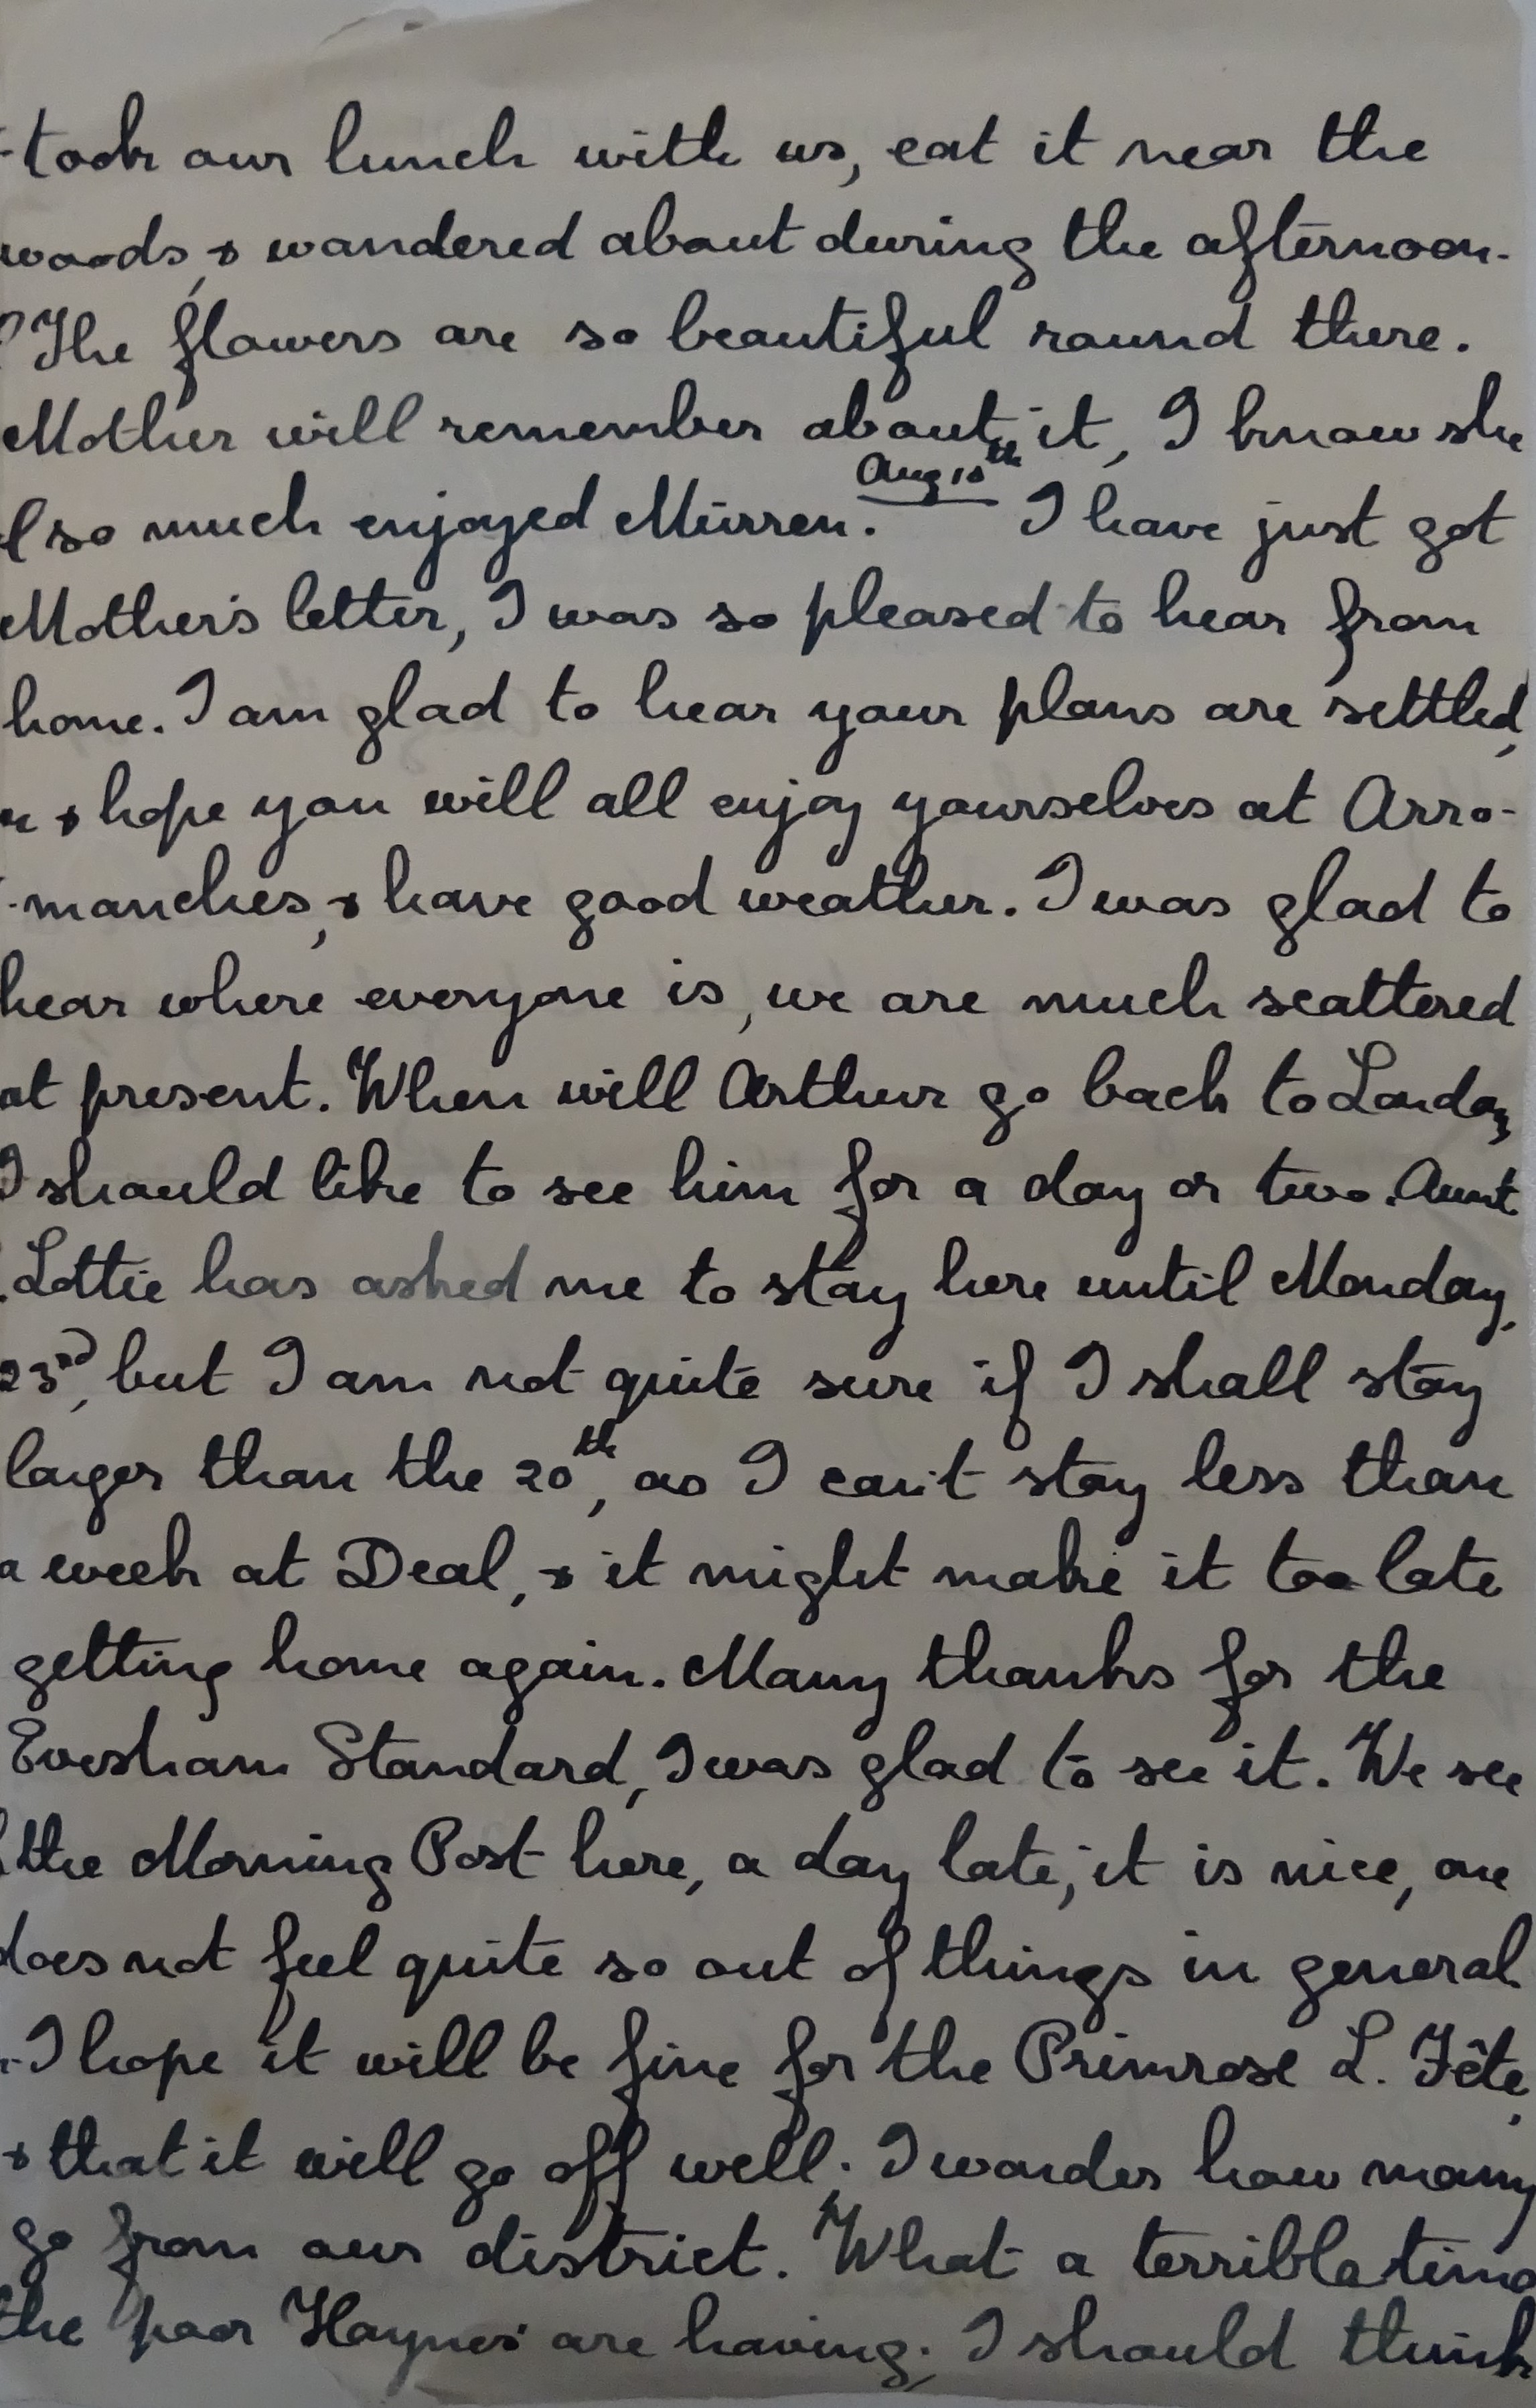 took our lunch with us, eat it near the
woods, & wandered about during the afternoon.
The flowers are so beautiful round there.
Mother will remember about it, I know she
so much enjoyed Mürren. Aug 10th I have just got
Mother's letter, I was so pleased to hear from
home. I am glad to hear your plans are settled,
& hope you will all enjoy yourselves at Arro-
-manches, & have good weather. I was glad to
hear where everyone is, we are much scattered
at present. When will Arthur go back to London,
I should like to see him for a day or two. Aunt
Lottie has asked me to stay here until Monday,
23rd, but I am not quite sure if I shall stay
longer than the 20th, as I can't stay less than
a week at Deal, & it might make it too late
getting home again. Many thanks for the
Evesham Standard, I was glad to see it. We see
the Morning Post here, a day late, it is nice, one
does not feel quite so out of things in general
I hope it will be fine for the Primrose L. Fête,
& that it will go off well. I wonder how many
go from our district. What a terrible time
the poor Haynes' are having. I should think